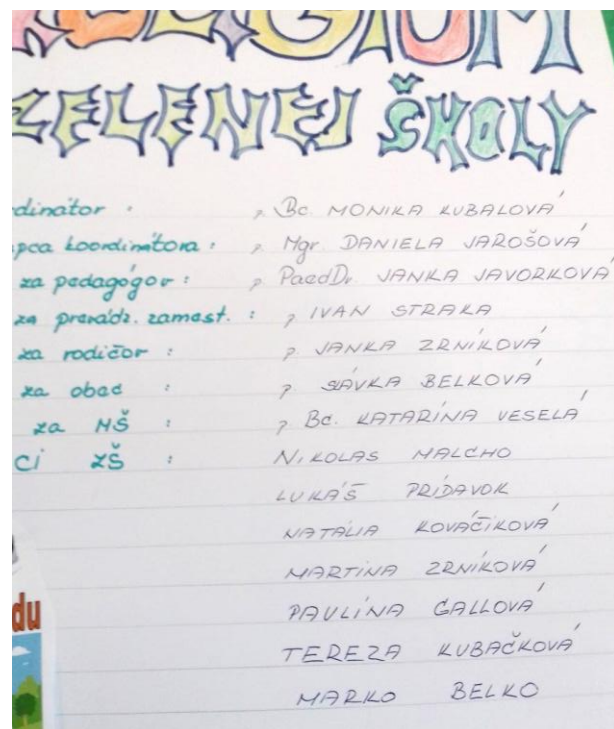 ZELENEJ ŠKOLY
dinátor : p. Bc. MONIKA KUBALOVÁ
pca koordinátora : p. Mgr. DANIELA JAROŠOVÁ
za pedagógov : p. PaedDr. JANKA JAVORKOVÁ
za prevádz. zamest. : p. IVAN STRAKA
za rodičov : p. JANKA ZRNÍKOVÁ
za obec : p. SÁVKA BELKOVÁ
za MŠ : p. Bc. KATARÍNA VESELÁ
ci ZŠ : NIKOLAS MALCHO
LUKÁŠ PRÍDAVOK
NATÁLIA KOVÁČIKOVÁ
MARTINA ZRNÍKOVÁ
PAULÍNA GALLOVÁ
TEREZA KUBAČKOVÁ
MARKO BELKO
du